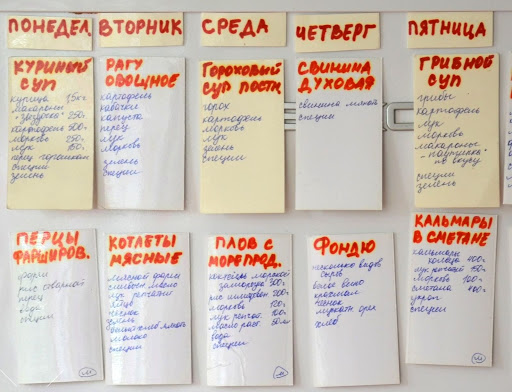 ПОНЕДЕЛ.
ВТОРНИК
СРЕДА
ЧЕТВЕРГ
ПЯТНИЦА
КУРИНЫЙ
СУП
курица 1,5кг
макароны
"звёздочка" 250г
картофель 500г
морковь 250г
лук 150г
перец горошком
специи
зелень
РАГУ
ОВОЩНОЕ
картофель
кабачок
капуста
перец
лук
морковь
зелень
специи
ГОРОХОВЫЙ
СУП ПОСТН.
горох
картофель
морковь
лук
зелень
специи
СВИНИНА
ДУХОВАЯ
свинина
специи
ГРИБНОЙ
СУП
грибы
картофель
лук
морковь
макароны
"паутинка"
по вкусу
специи
зелень
ПЕРЦЫ
ФАРШИРОВ.
фарш
рис отварной
перец
вода
специи
КОТЛЕТЫ
МЯСНЫЕ
мясной фарш
сливочн масло
лук репчатый
яйцо
чеснок
зелень
белый хлеб
молоко
специи
ПЛОВ С
МОРЕПРОД.
коктейль морской
заморож 500г
рис 200г
морковь 120г
лук репчат. 100г
масло раст. 50мл
вода
специи
ФОНДЮ
несколько видов
сыров
белое вино
крахмал
чеснок
мускатн орех
хлеб
КАЛЬМАРЫ
В СМЕТАНЕ
кальмары
кольца 400г
лук репчатый 150г
морковь 100г
сметана 400г
укроп
специи